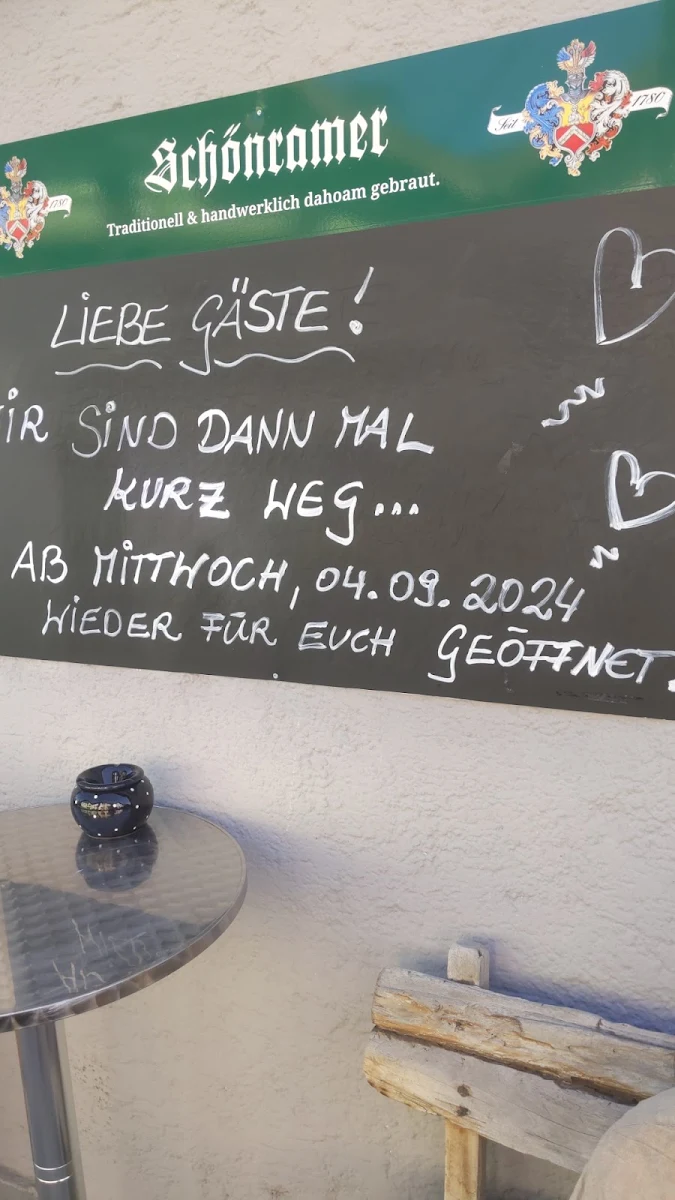 Schönramer
Traditionell & handwerklich dahoam gebraut.
Seit 1780
1780
LIEBE GÄSTE!
WIR SIND DANN MAL
KURZ WEG...
AB MITTWOCH, 04.09.2024
WIEDER FÜR EUCH GEÖFFNET.